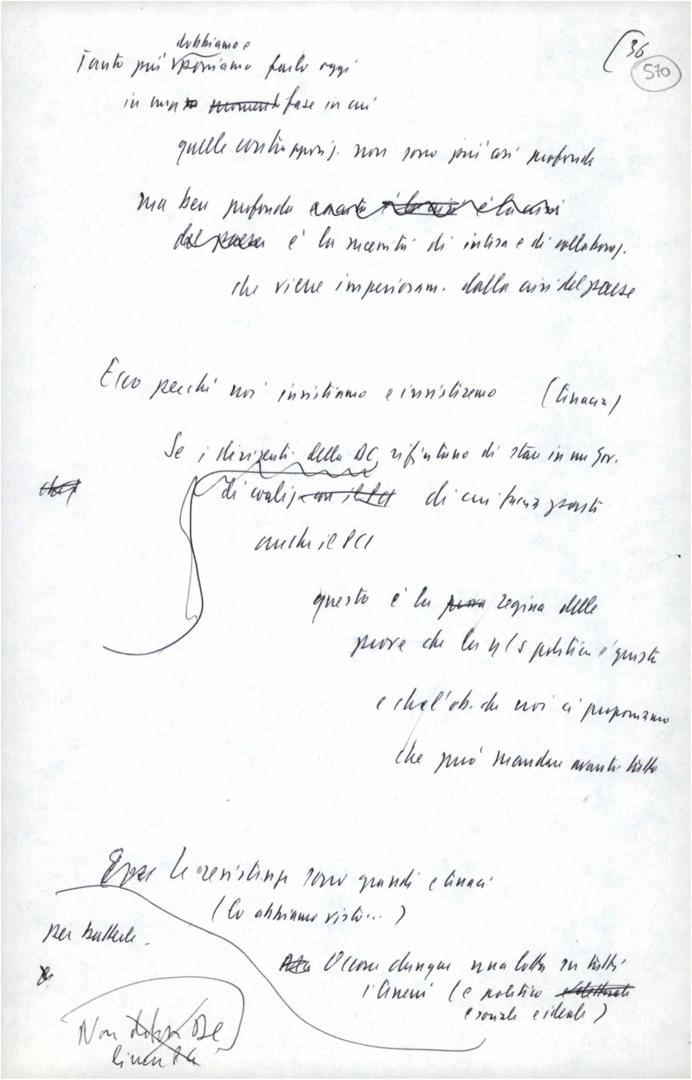 36
570
dobbiamo e
Tanto più possiamo farlo oggi
in una fase in cui
quelle contrapposiz. non sono più così profonde
ma ben profonda
del paese è la necessità di intesa e di collaboraz.
che viene imperiosam. dalla crisi del paese
Ecco perché noi insistiamo e insisteremo (tenacia)
Se i dirigenti della DC rifiutano di stare in un Gov.
di coaliz. con il PCI di cui faccia parte
anche il PCI
questo è la prova regina delle
prove che la n/s politica è giusta
e che l'ob. che noi ci proponiamo
che può mandare avanti tutto
le resistenze sono grandi e tenaci
(lo abbiamo visto...)
per batterle.
Ma Occorre dunque una lotta su tutti
i terreni (e politico
e sociale e ideale)
Non
linea